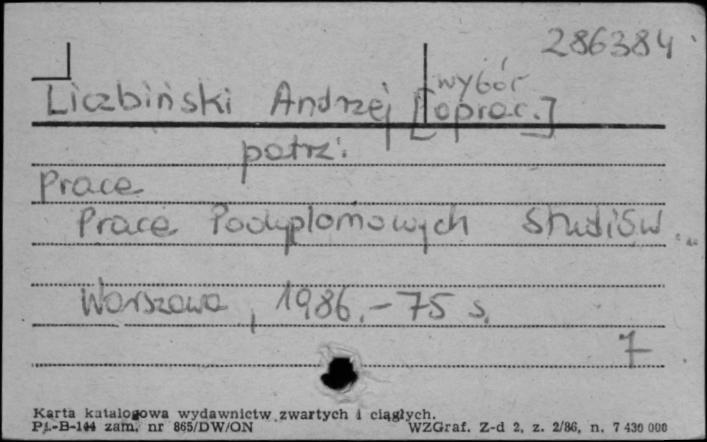 286384
wybór
Liczbiński Andrzej [oprac.]
patrz:
Prace
Prace Podyplomowych Studiów...
Warszawa, 1986. - 75 s.
7
Karta katalogowa wydawnictw zwartych i ciągłych.
Pu-B-144 zam. nr 865/DW/ON WZGraf. Z-d 2, z. 2/86, n. 7 430 000